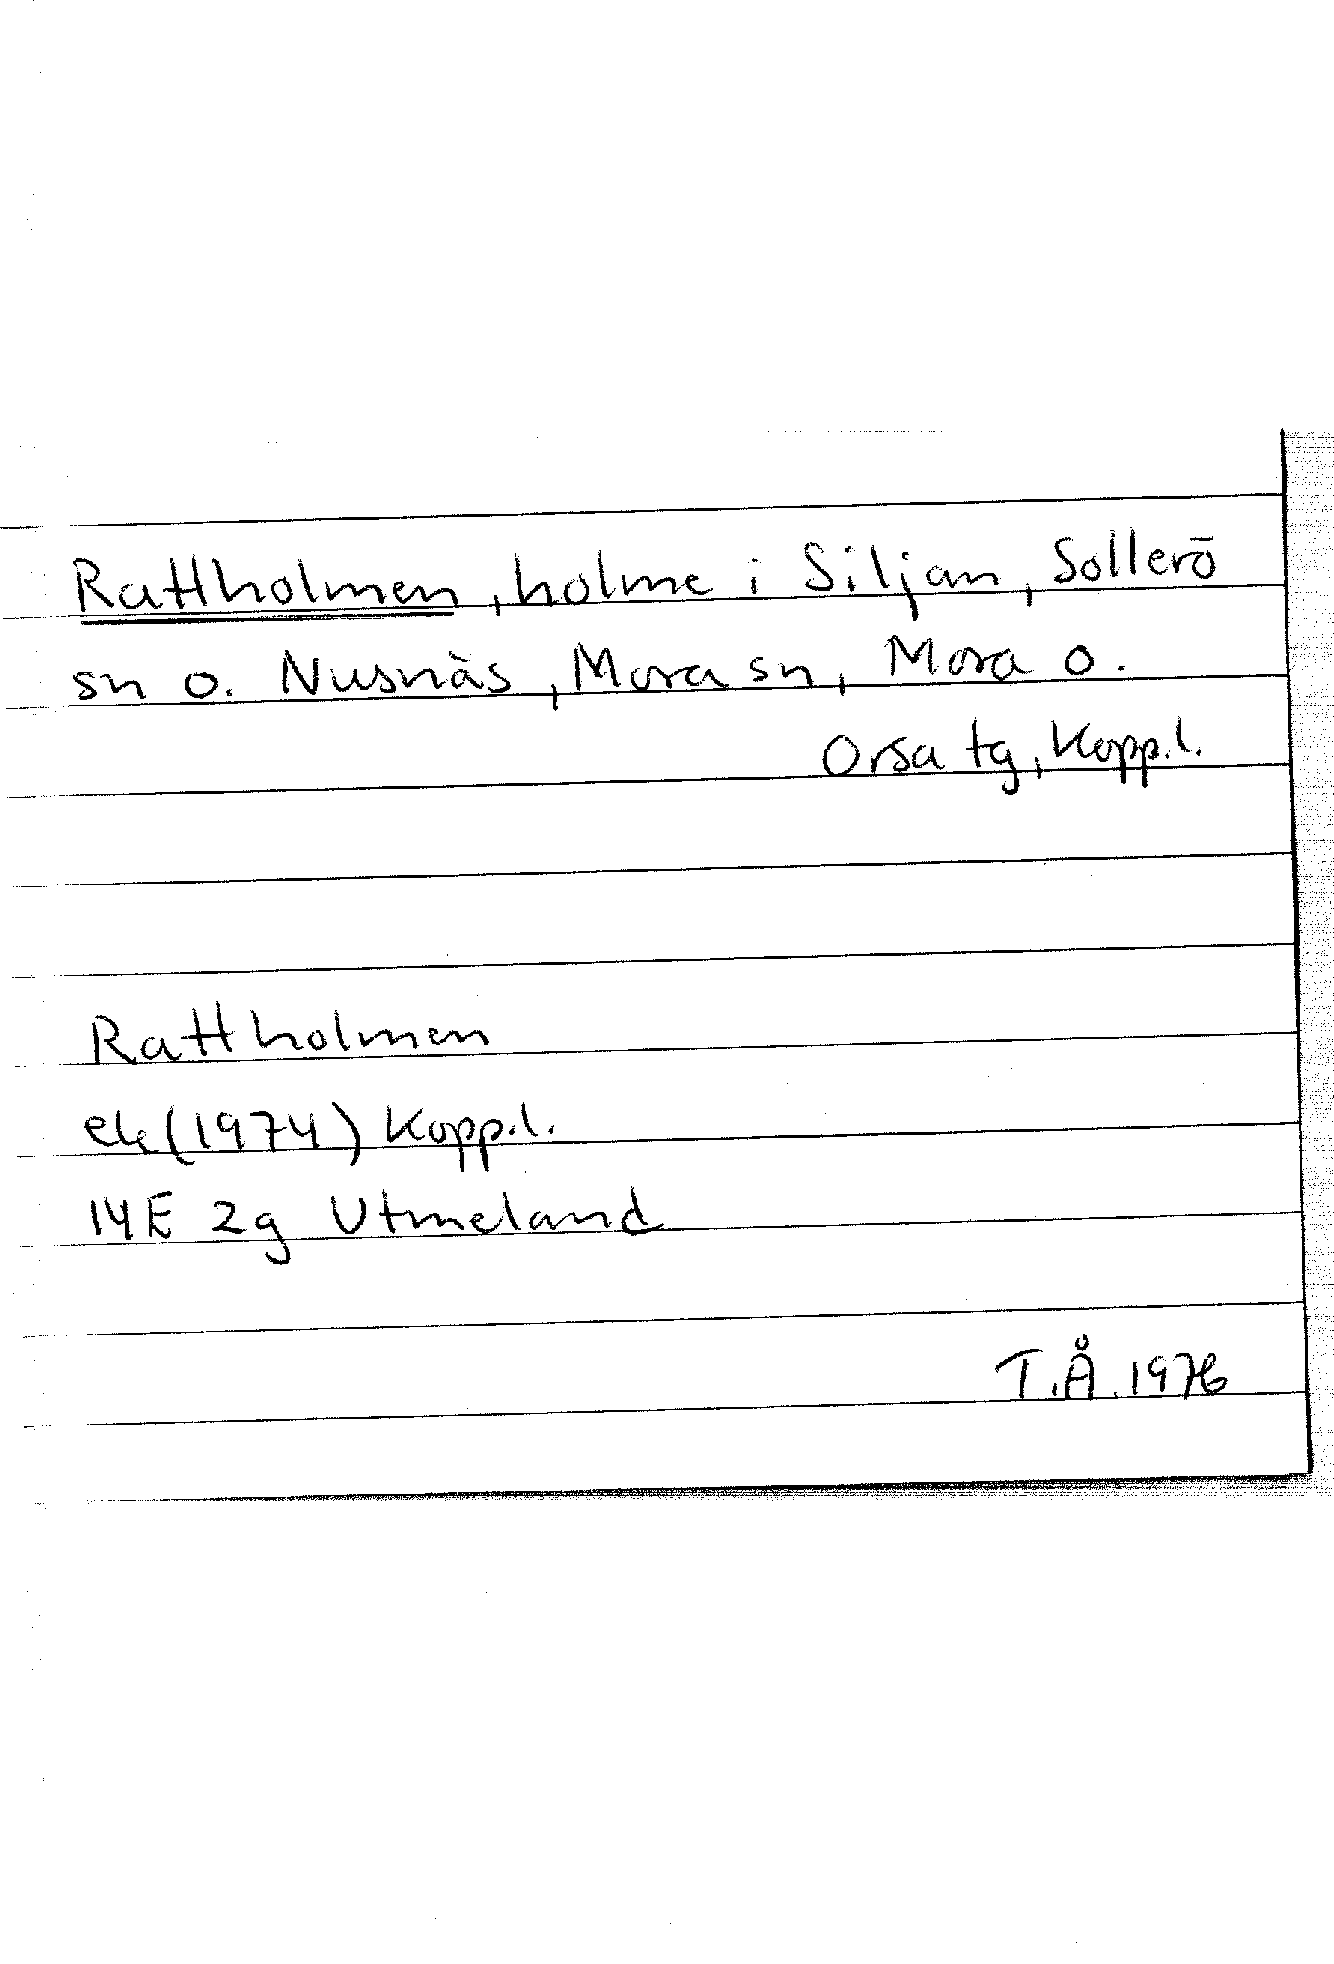 Rattholmen, holme i Siljan, Sollerö
sn o. Nusnäs, Mora sn, Mora o.
Orsa tg, Kopp.l.
Rattholmen
ek (1974) Kopp.l.
14E 2g Utmeland
T.Å. 1976